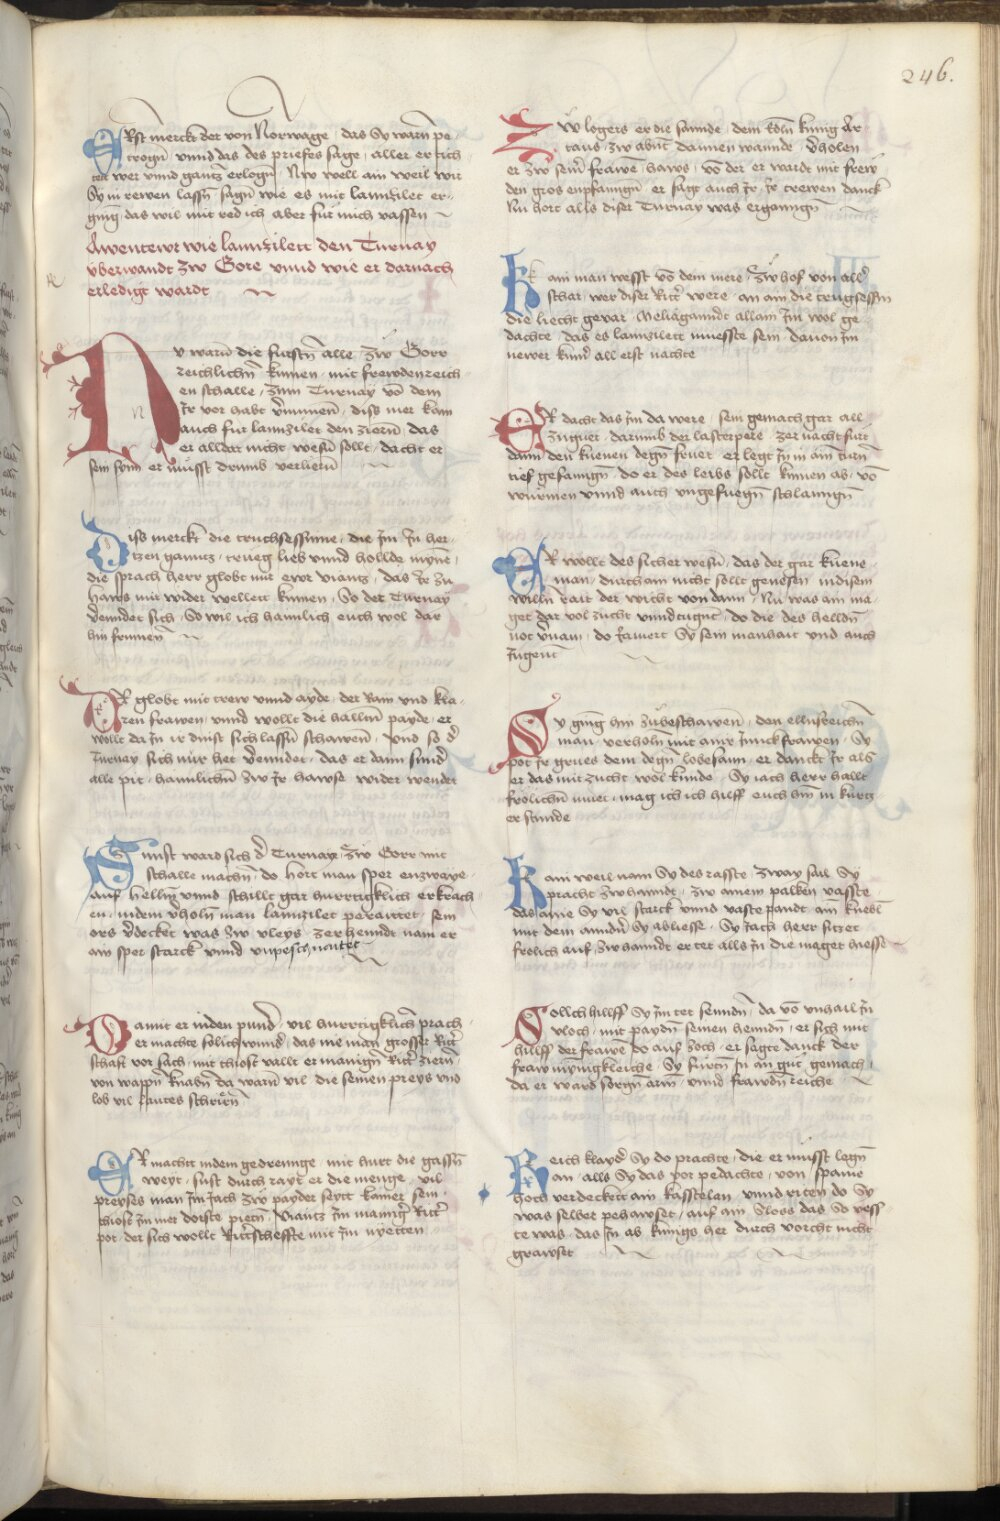 246.
ERst merckt der von Norwage, das Sy warn̄ pe
trogn̄ vnnd das des priefes sage, aller er tich
tett wer vnnd gantz erlogn̄, Nw well ain weil wir
Sy in rewen lassn̄ sagn̄ wie es mit lannzilet er
ging, das wil mit red ich aber für mich vassen
Awentewr wie lannzilett den Turnay
vberwandt zw Gore vnnd wie er darnach
erledigt wardt
Nv warn̄ die fürstn̄ alle zw Gorr
reichlichn̄ kumen, mit frewdenreich
en schalle, zum Turnay vō dem
Ir vor habt v̄nummen, diss mer kam
auch für lannzilet den ziern̄, das
er alldar nicht wesn̄ sollt, dacht er
sein synn er muesst drumb verliern̄
Diss merckt die truchsessinne, die Im In her
tzen ganntz, trueg lieb vnnd hollde mynne,
die sprach herr globt mir ewr vianntz, das Ir zu
haws mir wider wellett kumen, So der Turnay
v̄enndet sich, So wil ich hainlich euch wol dar
hin frummen̄
ER globt mit trew vnnd ayde, der Rain vnd kla
ren frawen, vnnd wollt die hallten payde, er
wollt da In ir dinst sich lassn̄ schawen̄, vnd so d̄
Turnay sich nur het v̄enndet, das er dann sunnd̄
alle pit, hainlichn̄ zw Ir hawse wider wendet
Sunst ward sich d̄ Turnay zw Gorr mit
schalle machn̄, do hort man sper enzwaye,
auf hellm̄ vnnd schillt gar hurrtigklich erkrach
en, indem v̄holn̄ man lannzilet peraittet, sein
ors v̄deckket was zw vleys, zerhenndt nam er
ain sper starck vnnd vnpeschnaitet
Damit er inden pund̄, vil hurrtigklich̄ prach,
er machte solich wund̄, das nie man grosser Ritt̄
schaft vor sach, mit thiost vallt er manign̄ Ritt̄ ziern̄,
von wappn̄ knabn̄ da warn̄ vil die seinen preys vnd
lob vil lautes schrirn̄
ER macht indem gedrennge, mit hurt die gassn̄
weyt, sust durch rayt er die menge, vil
preyses man Im Iach zw payder seytt, kainer sein
thiost Im mer dorffte pietn̄, vianntz Im maniḡ Ritt̄
pot, der sich wollt Ritt̄scheffte mit Im nyetten
Zw logers er die sannde, dem edln̄ kunig Ar
taus, zw abnt dannen wannde, v̄holen
er zw sein̄ frawē, haws, vō der er wardt mit frew
den gros enpfanngn̄, er sagt auch Ir, Ir trewen danck
Nu hort alls diser Turnay was erganngn̄
Kain man wesst vō dem mere, zw hof von all̄
schar, wer diser Ritt̄ were, an ain die trugsessin
die liecht gevar, Meliaganndt allain Im wol ge
dachte, das es lannzilett muesste sein, davon Im
newer kum̄ all erst nachte
ER dacht das Im da were, sein gemach gar all
zuguet, darumb der lasterpere, zernacht furt
dann den kuenen degn̄ fruet, er legt In in ain turn̄
tief gefanngn̄, do er des leibs sollt kumen ab, vō
wurmen vnnd auch vngefuegn̄ schlanngn̄
ER wollt des sicher wesn̄, das der gar kuene
man, durch ain nicht sollt genesen, in disem
willn̄ rait der wicht von dann, Nu was ain ma
get dar vol zucht vnnd tugnt, do die des helldn̄
not v̄nam, do Iamert Sy sein manhait vnd auch
Iugent
Sy ging hin zubeschawen̄, den ellnsreichn̄
man, verholn̄ mit ainr Iunckfrawen, Sy
pot Ir grues dem degn̄ lobesam, er danckt Ir als
er das mit zucht wol kunde, Sy iach herr hallt
frolichn̄ muet, mag ich ich hilff euch hin̄ in kurtz
er stunde
Kain weil nam Sy des rasste, zway sail Sy
pracht zwhanndt, zw ainem palken vasste,
das aine Sy vil starck vnnd vaste pandt, ain kuebl̄
mit dem anndn̄ Sy abliesse, Sy Iach herr sitzet
frolich auf, zwhanndt er tet alls In die maget hiesse
Sollch hillff Sy Im tet sennden̄, da vō vnhail In
vloch, mit paydn̄ seinen henndn̄, er sich mit
hillff der frawē do auf zoch, er sagte danck der
fraw mynnigkleiche, Sy furtn̄ In an guet gemach,
da er ward sorgn̄ arm̄, vnnd frawdn̄ reiche
Reich klayd̄ Sy do prachte, die er muesst legn̄
an, alls Sy das vor pedachte, von spanie
hoch verdecktt ain kasstelan, vnnd riten do Sy
was selber pehawset, auf ain Sloss das So vess
te was, das In ab kunigs her durch vorcht nicht
grawset